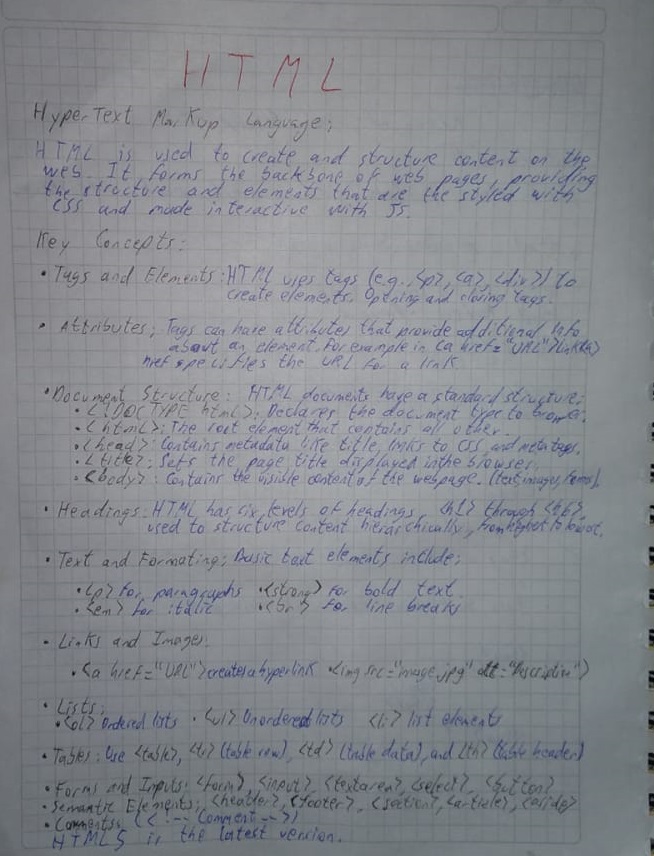 HTML
HyperText MarKup Language;
HTML is used to create and structure content on the
web. It forms the backbone of web pages, providing
the structure and elements that are the styled with
CSS and made interactive with JS.
Key Concepts:
• Tags and Elements: HTML uses tags (e.g., <p>, <a>, <div>) to
create elements. Opening and closing tags.
• Attributes; Tags can have attributes that provide additional info
about an element. For example in <a href="URL">Link</a>
href specifies the URL for a link.
• Document Structure: HTML documents have a standard structure:
• <!DOCTYPE html>: Declares the document type to browser.
• <html>: The root element that contains all other.
• <head>: Contains metadata like title, links to CSS, and meta tags.
• <title>: Sets the page title displayed in the browser.
• <body>: Contains the visible content of the webpage. (text, images, forms).
• Headings: HTML has six levels of headings, <h1> through <h6>,
used to structure content hierarchically, from highest to lowest.
• Text and Formating; Basic text elements include;
• <p> for paragraphs • <strong> for bold text
• <em> for italic • <br> for line breaks
• Links and Images:
• <a href="URL"> creates a hyperlink • <img src="image.jpg" alt="Description">
• Lists:
• <ol> Ordered lists • <ul> Unordered lists <li> list elements
• Tables: Use <table>, <tr> (table row), <td> (table data), and <th> (table header)
• Forms and Inputs: <form>, <input>, <textarea>, <select>, <button>
• Semantic Elements; <header>, <footer>, <section>, <article>, <aside>
• Comments: (<!-- Comment -->)
HTML5 is the latest version.